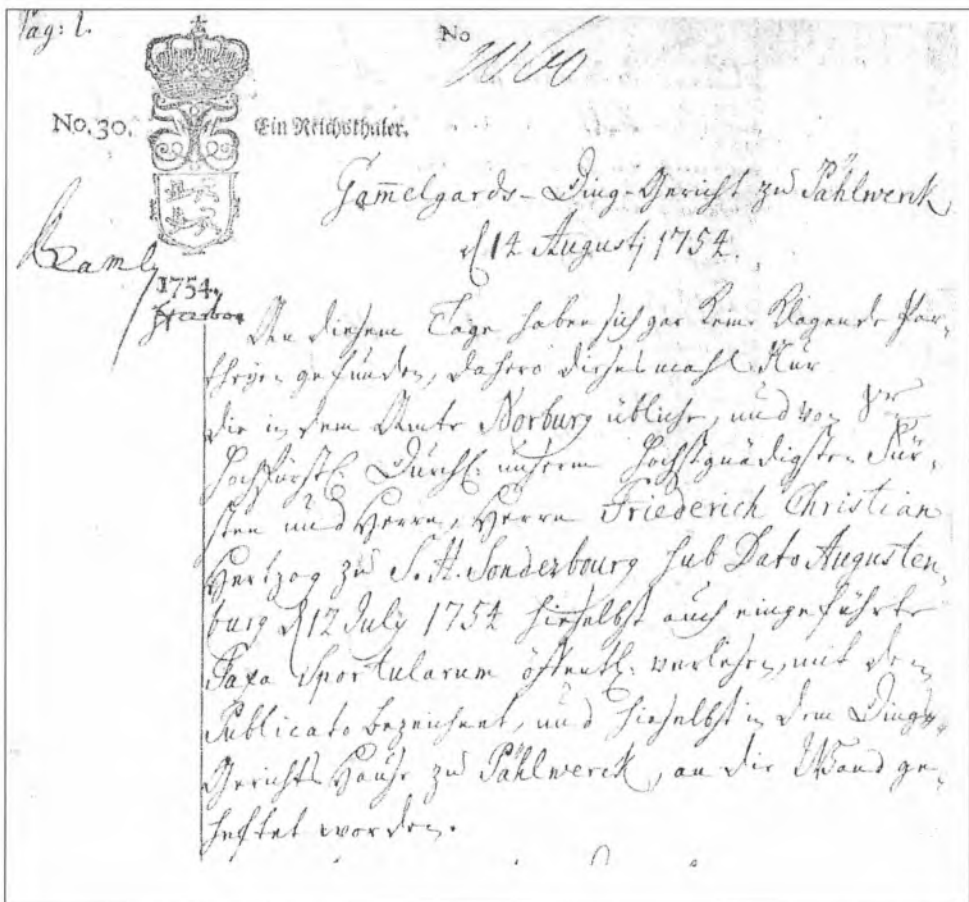 Pag: 1.
No
No. 30.
Ein Reichsthaler.
Gam̅elgards-Ding-Gericht zu Pählwerck
d 14 Augusti 1754.
1754.
An diesem Tage haben sich gar keine Klagende Par-
theyen gefunden, dahero dieses mahl Nur
die in dem Amte Norburg übliche, und von Sr
Hochfürstl: Durchl: unserm Höchstgnädigsten Für-
sten und Herrn, Herrn Friederich Christian
Hertzog zu S. H. Sonderbourg sub Dato Augusten-
burg d 12 July 1754 hieselbst auch eingeführte
Taxa Sportularum öffentl: verlesen, mit dem
Publicato bezeichnet, und hieselbst in dem Ding-
Gerichts Hause zu Pählwerck, an die Wand ge-
heftet worden.